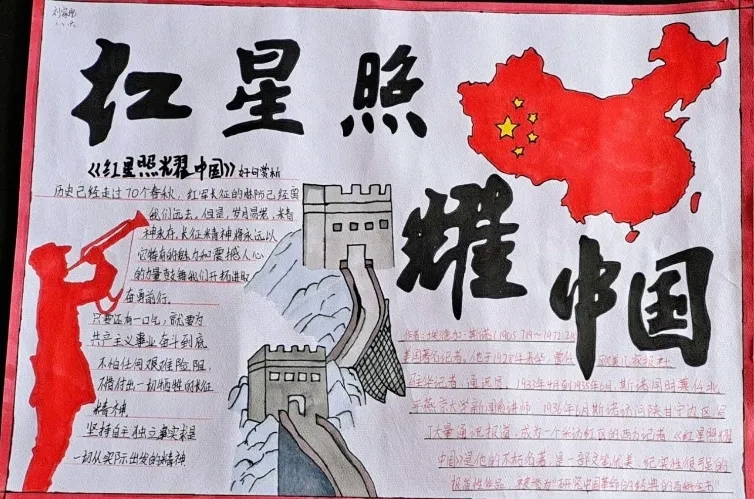 红星照
耀
中国
《红星照耀中国》好句赏析
历史已经走过70个春秋，红军长征的
我们远去。但是，岁月易老，精
神永存。长征精神将永远以
它特有的魅力和震撼人心
的力量鼓舞我们开拓进取
奋勇前行。
只要还有一口气，就要为
共产主义事业奋斗到底
不怕任何艰难险阻，
不惜付出一切牺牲的长征
精神
坚持自主独立事实求是
一切从实际出发的精神
作者：埃德加·斯诺（1905.7.19～1972.2.
美国著名记者。他于1928年来华，曾任
驻华记者、通讯员。1933年4月到1935年6月，斯诺同时兼任北
京燕京大学新闻系讲师。1936年6月斯诺访问陕甘宁边区，写
了大量通讯报道，成为一个采访红区的西方记者。《红星照耀
中国》是他的不朽名著，是一部文笔优美，纪实性很强的
报道性作品